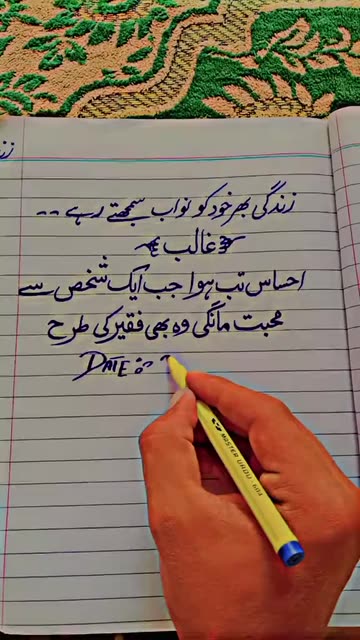 زند
زندگی بھر خود کو نواب سمجھتے رہے --
غالب
احساس تب ہوا جب ایک شخص سے
محبت مانگی وہ بھی فقیر کی طرح
DATE :-
MASTER URDU 604